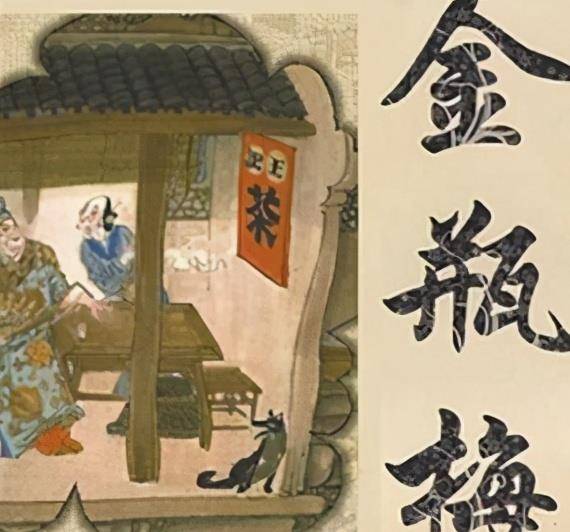 金
瓶
梅
王記
茶